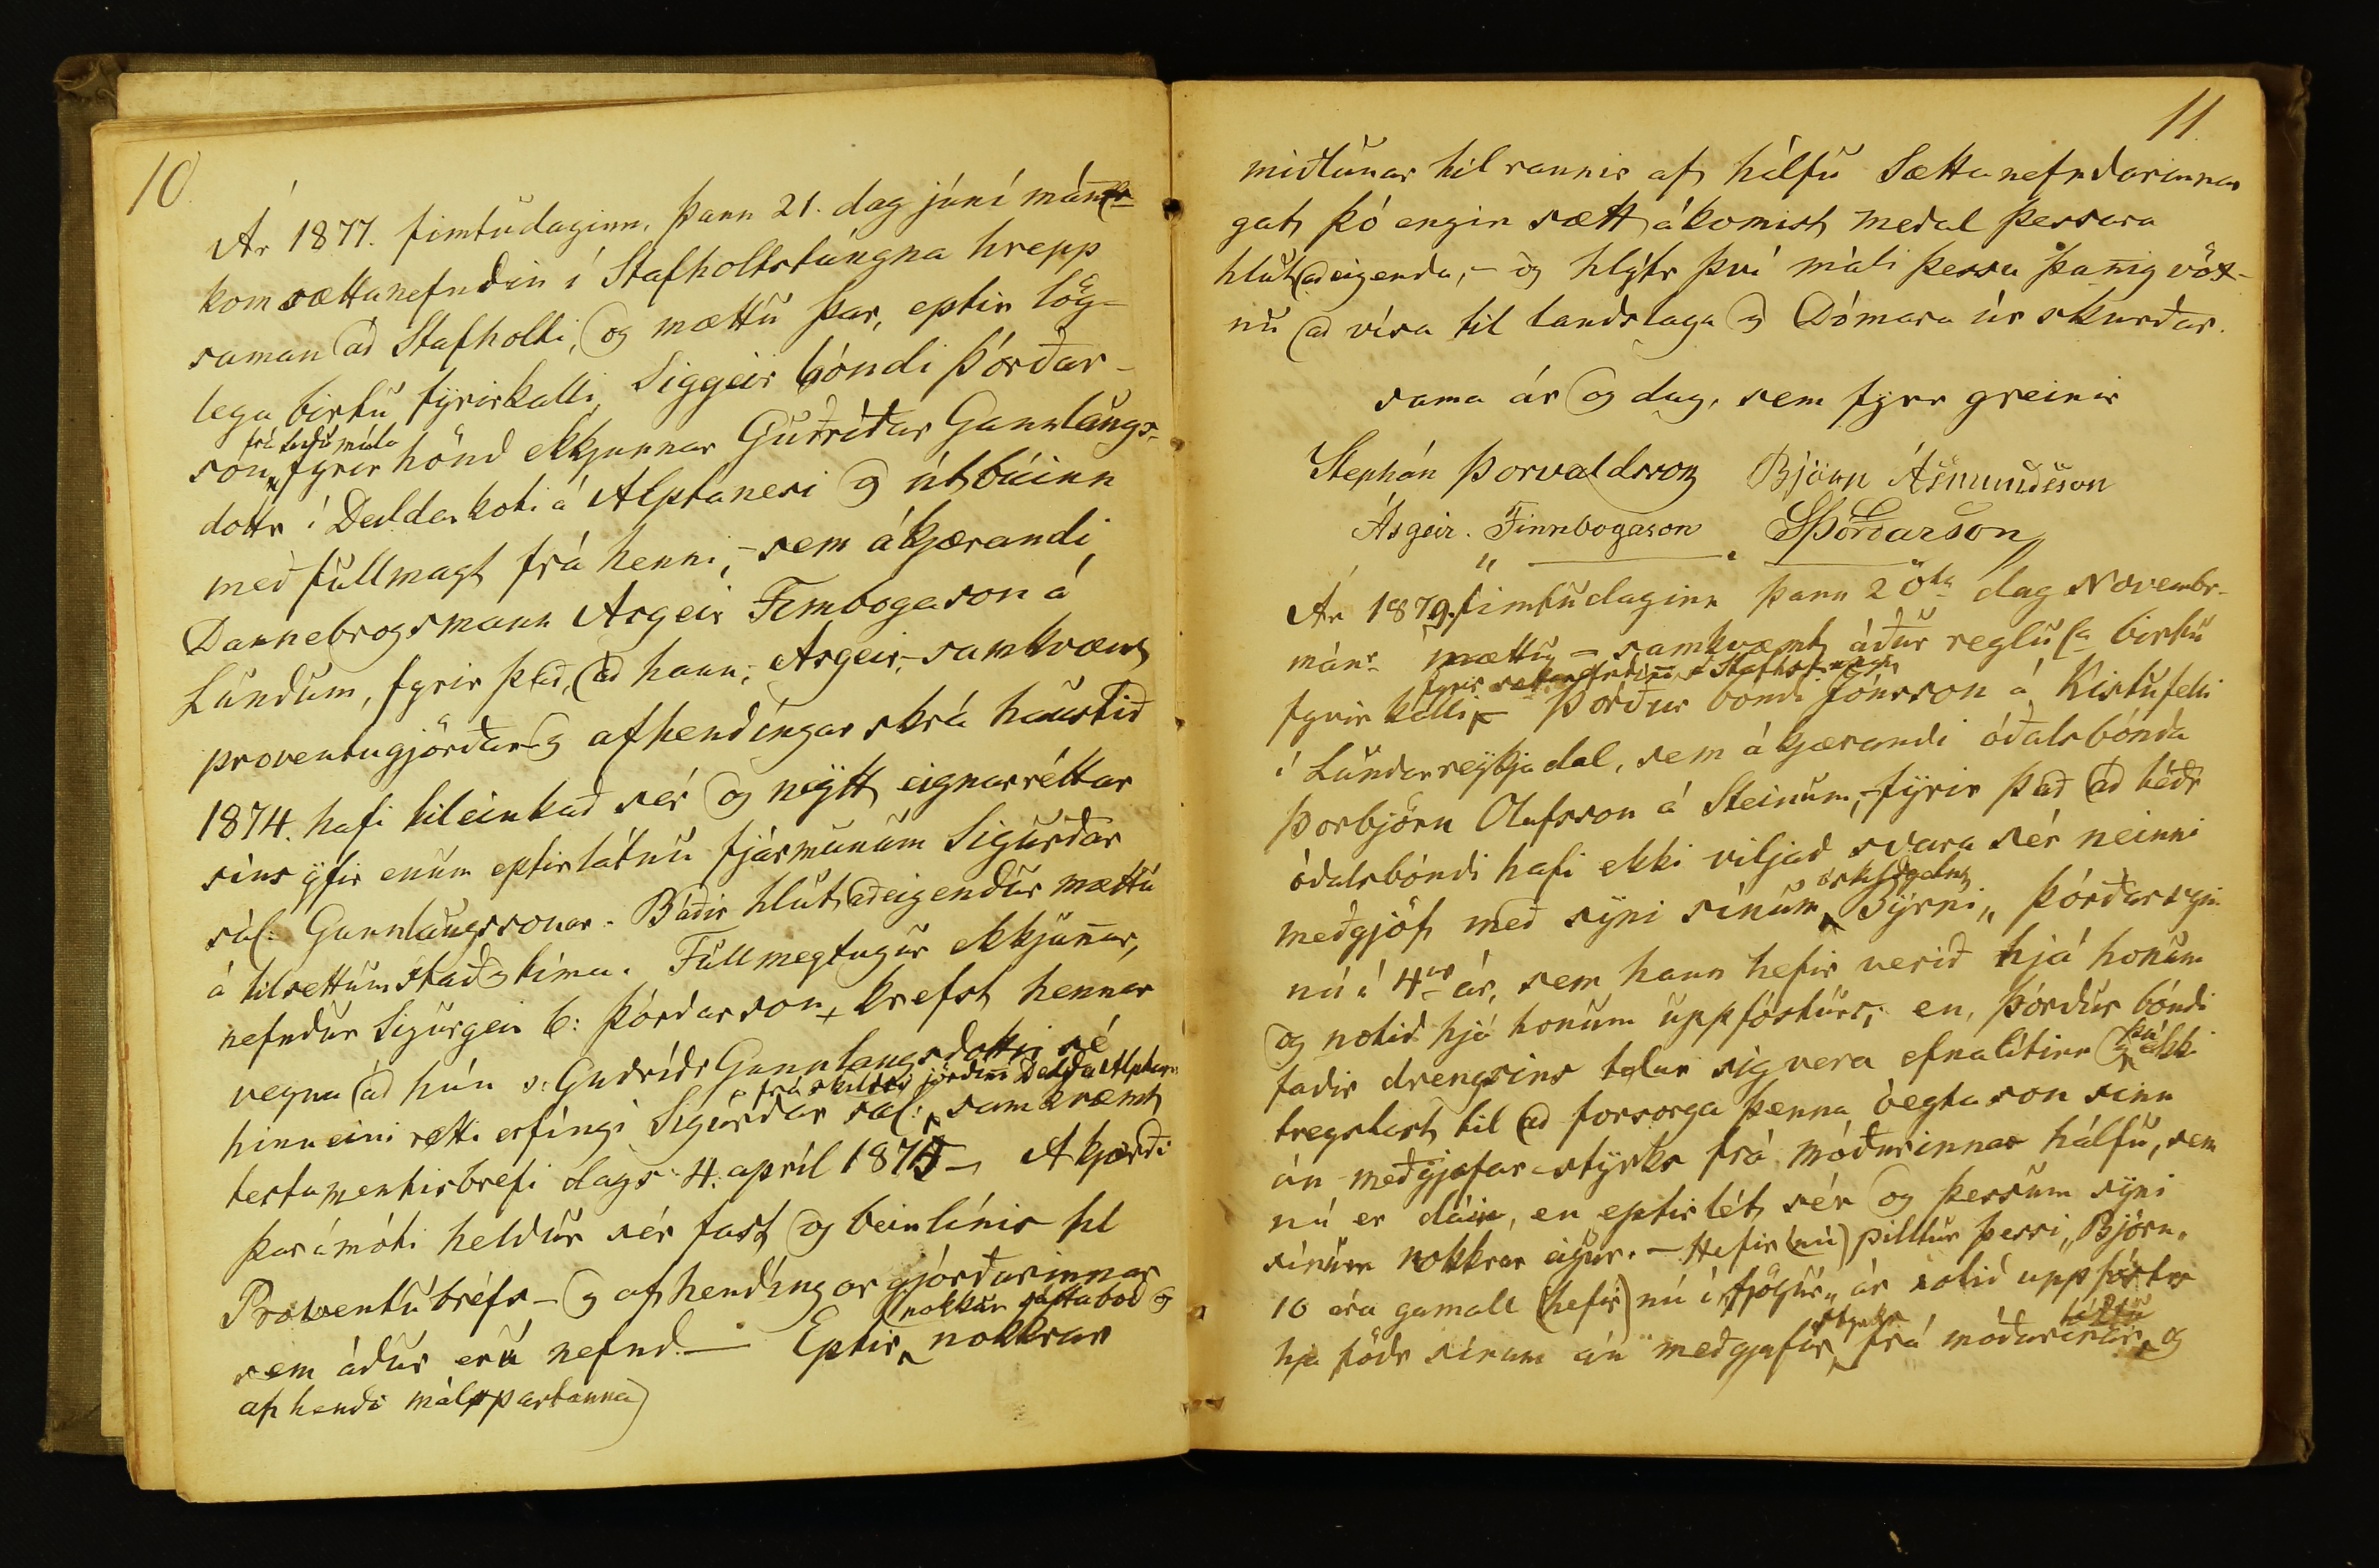 10.
Ár 1877. fimtudaginn, þann 21. dag júní mán
kom sættanefndin í Stafholtstúngna hrepp
saman að Stafholti, og mættu þar, eptir lög-
lega birtu fyrirkalli, Siggeir bóndi Þórðar-
son, fyrir hönd ekkjunnar Guðríðar Gunnlaugs-
dottr í Deildarkoti á Alptanesi og útbúinn
með fullmagt frá henni, – sem ákjærandi
Dannebrogsmann Asgeir Finnbogason á
Lundum, fyrir það, að hann, Asgeir, – samkvæmt
proventugjörðar og afhendíngar skrá haustið
1874. hafi tileinkað sér og neytt eignarréttar
síns yfir enum eptirlátnu fjármunum Sigurðar
sál: Gunnlaugssonar. Báðir hlutaðeigendur mættu
á tilsettum stað og tíma. Fullmegtugur ekkjunnar,
nefndur Sigurgeir b: Þórðarson, krefst hennar
vegna að hún s: Guðríðr Gunnlaugsdottir sé
frá skildri jörðinni
hinn eini rétti erfíngi Sigurðar sál: samkvæmt
testamentisbrefi dags: 4. apríl 1875 – Ákjærði
þar ámóti heldur sér fast og beinlínis til
Proventubréfs – og afhendíngar gjörðarinnar
nokkur sáttaboð og
sem áður eru nefnd. – Eptir nokkrar
af hendi málspartanna)
11.
miðlunar tilraunir af hálfu Sættanefndarinnar
gat þó engin sætt ákomist meðal þessara
hlutaðeigenda, – og hlýtr því máli þessu þannig vöx-
nu að vísa til landslaga og Dómara úrskurðar.
sama ár og dag, sem fyrr greinir
Stephán Þorvaldsson Björn Ásmundsson
Ásgeir. Finnbogason SÞórðarson
Ár 1879. fimtudaginn þann 20ta dag Novembr-
mánr mættu – samkvæmt áður reglul birtu
fyrir sættanefndinni í
fyrirkalli – Þorður bondi Jónsson á Kistufelli
í Lundarreykjadal, sem ákjærandi óðalsbónda
Þorbjörn Olafsson á Steinum, – fyrir það að téðr
óðalsbóndi hafi ekki viljað svara sér neinni
meðgjöf með syni sínum Birni" Þórðarsyni
nú í 4ur ár, sem hann hefir verið hjá honum
og notið hjá honum uppfósturs; en, Þórður bóndi
faðir drengsins telur sig vera efnalítinn og ekki
tregstast til að forsorga þenna óegta son sinn
án meðgjafar-styrks frá móðurinnar hálfu, sem
nú er dáin, en eptirlét sér og þessum syni
sínum nokkrar eigur. – Hefir (nú) pilltur þessi, Björn,
10 ára gamall (hefir) nú í "fjögur" ár notið uppfósturs
styrks
hja föðr sínum án meðgjafar frá móðurinnar og